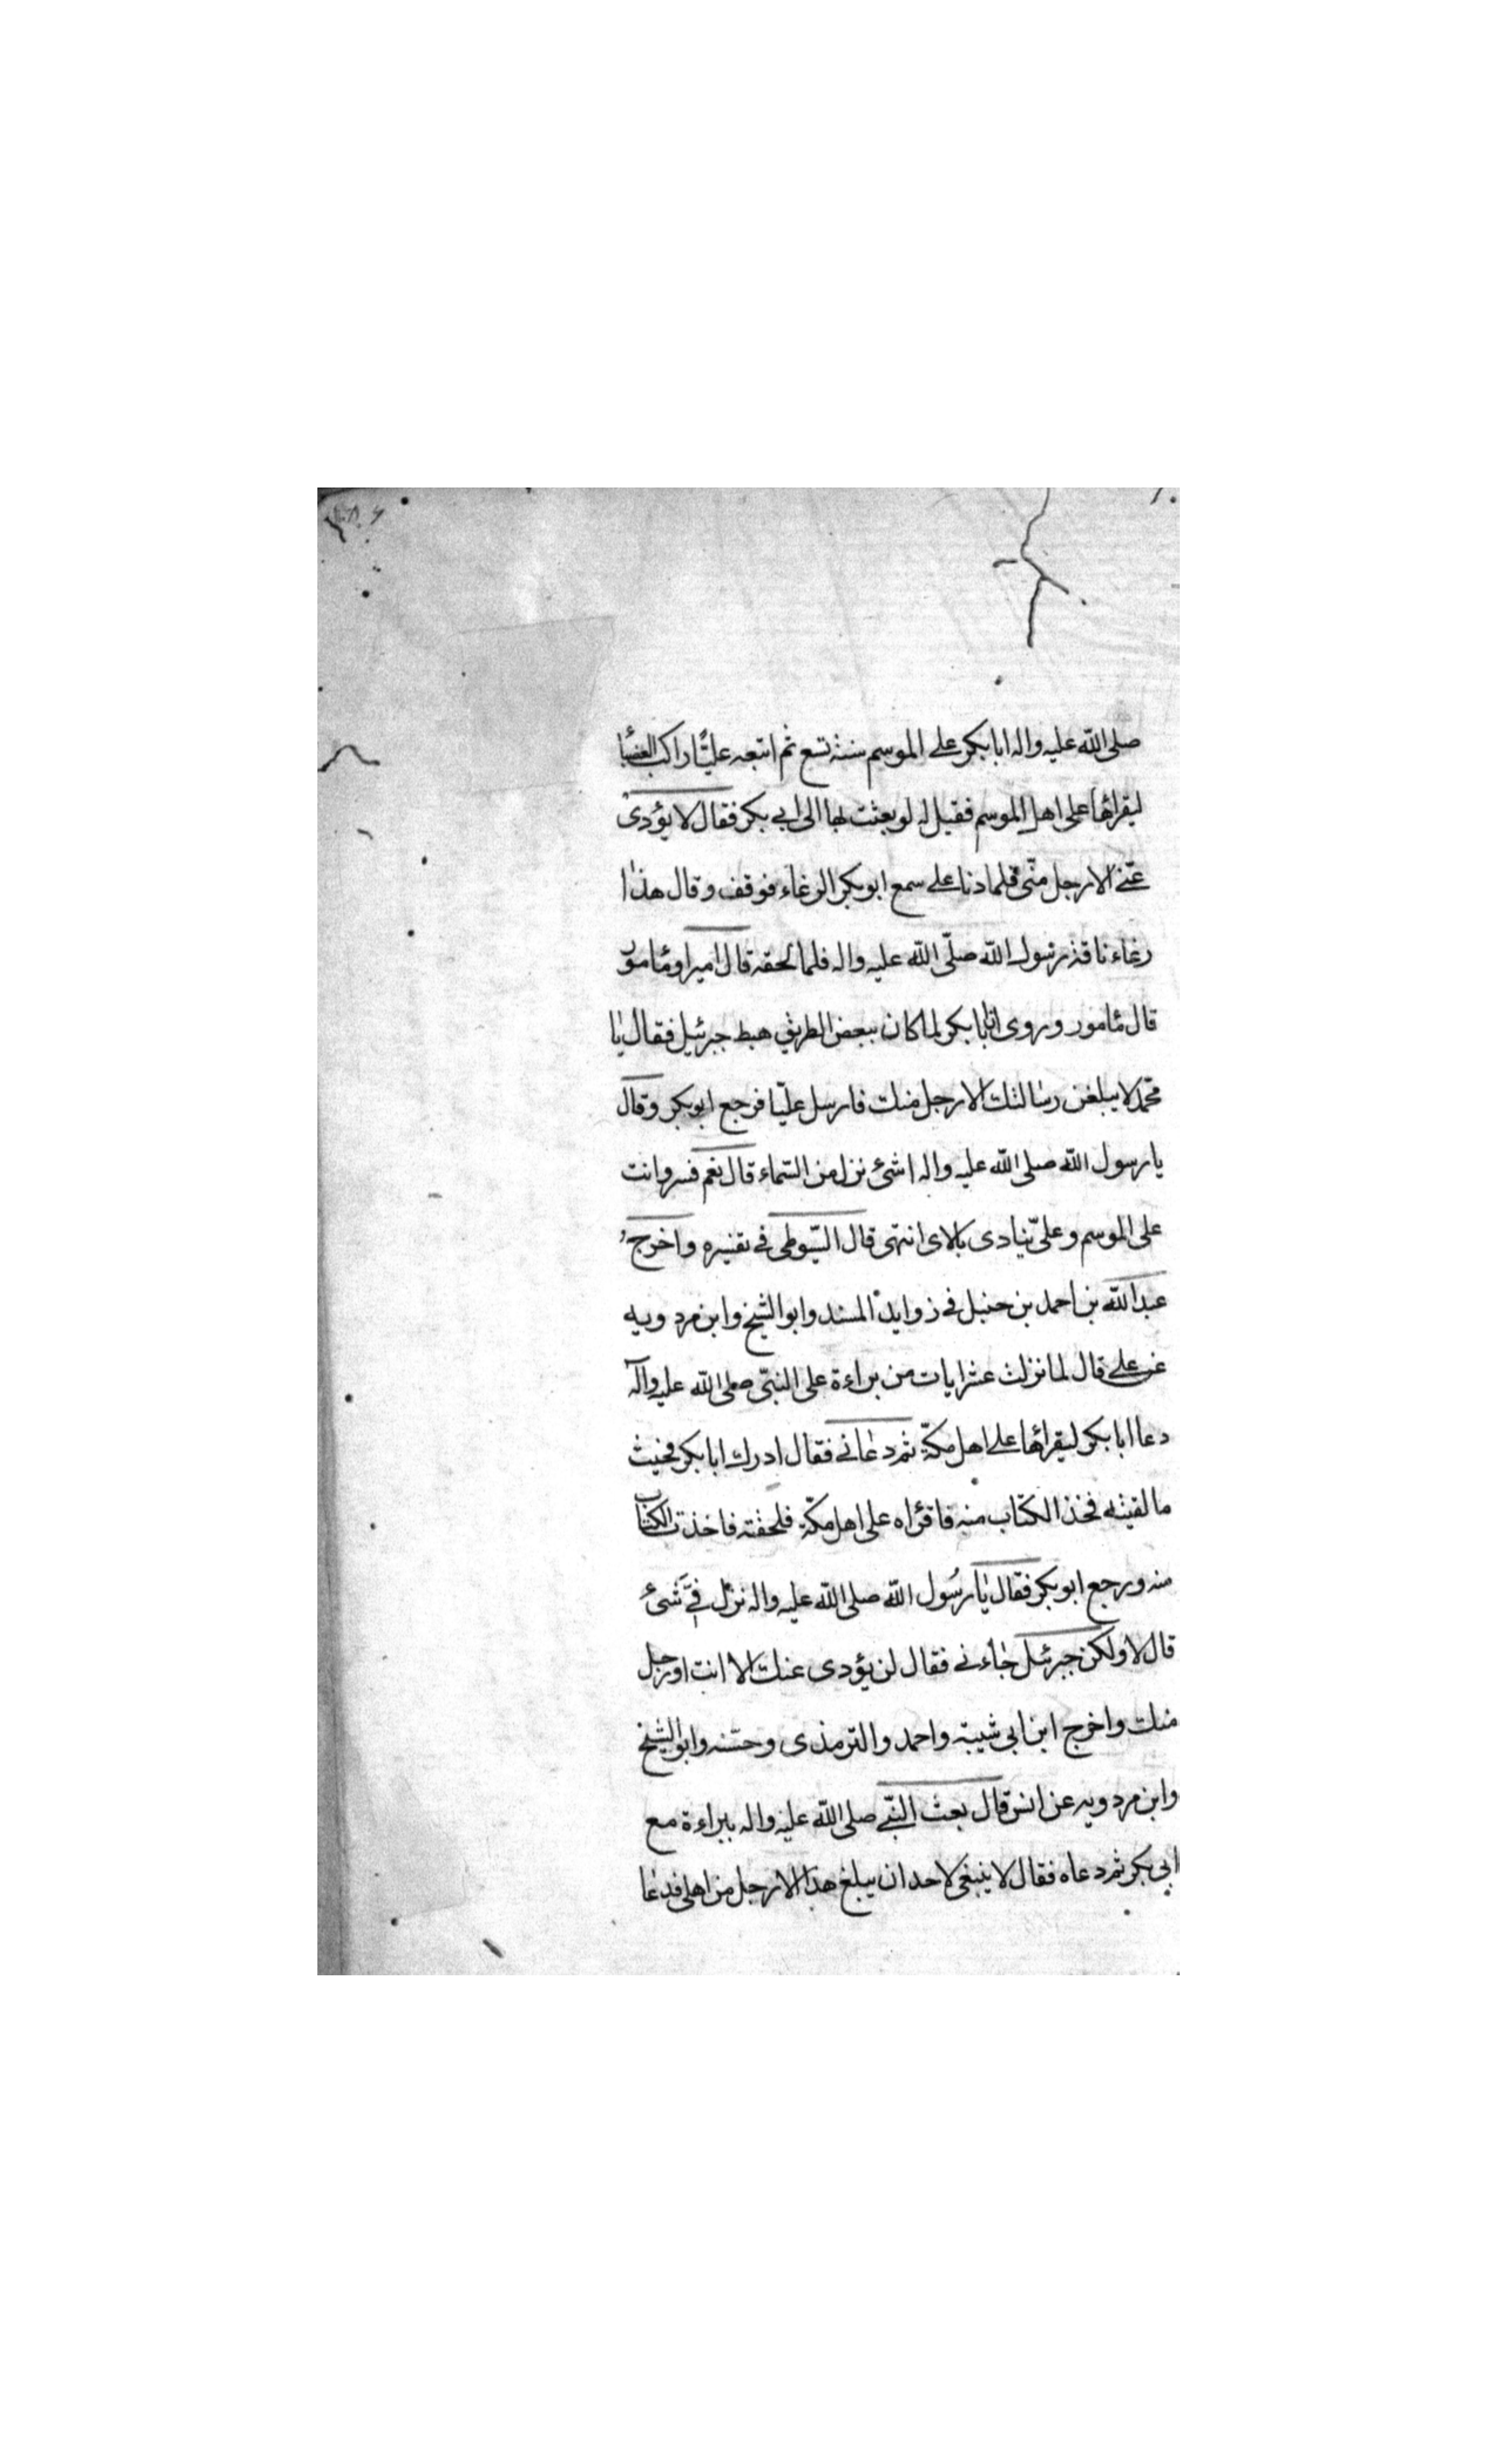 صلى الله عليه واله ابا بكر على الموسم سنة تسع ثم اتبعه عليّا راكب العضبا
ليقراها على اهل الموسم فقيل له لو بعثت بها الى ابي بكر فقال لا يؤدى
عنّى الا رجل منّى فلما دنا على سمع ابو بكر الرغاء فوقف وقال هذا
رغاء ناقة رسول الله صلّى الله عليه واله فلما لحقه قال امير او مأمور
قال مأمور وروى ان ابا بكر لما كان ببعض الطريق هبط جبرئيل فقال يا
محمّد لا يبلغن رسالتك الا رجل منك فارسل عليّا فرجع ابو بكر وقال
يا رسول الله صلى الله عليه واله اشئ نزل من السّماء قال نعم فسر وانت
على الموسم وعلىّ ينادى بالاى انتهى قال السّيوطى في تفسيره واخرج
عبد الله بن احمد بن حنبل في زوايد المسند وابو الشيخ وابن مردويه
عن على قال لما نزلت عشر ايات من براءة على النبىّ صلى الله عليه واله
دعا ابا بكر ليقراها على اهل مكّة ثم دعانى فقال ادرك ابا بكر فحيث
ما لقيته فخذ الكتاب منه فاقرأه على اهل مكّة فلحقته فاخذت الكتاب
منه ورجع ابو بكر فقال يا رسُول الله صلى الله عليه واله نزل فىَّ شئ
قال لا ولكن جبرئيل جاءنى فقال لن يؤدى عنك الا انت او رجل
منك واخرج ابن ابى شيبة واحمد والترمذى وحسّنه وابو الشيخ
وابن مردويه عن انس قال بعث النبّى صلى الله عليه واله ببراءة مع
ابى بكر ثم دعاه فقال لا ينبغى لاحد ان يبلغ هذا الا رجل من اهلى فدعا